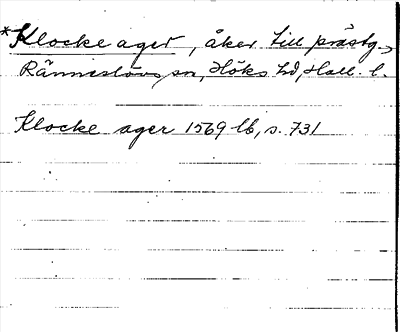 *Klocke ager, åker till prästg.,
Ränneslövs sn, Höks hd, Hall. l.
Klocke ager 1569 lb, s. 731